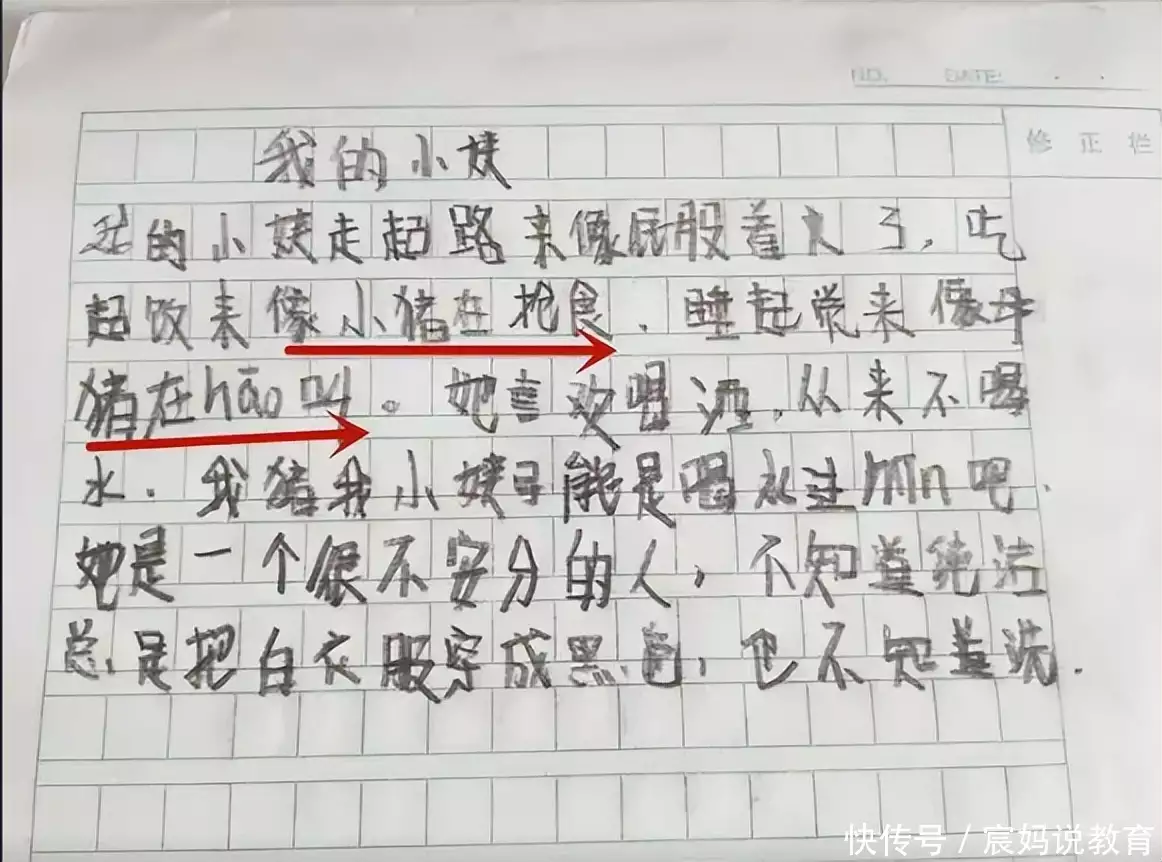 NO. DATE:
修正栏
我的小姨
我的小姨走起路来像屁股着火了,吃
起饭来像小猪在抢食.睡起觉来像母
猪在hāo叫。她喜欢喝酒,从来不喝
水.我猪我小姨可能是喝水过mǐn吧.
她是一个很不安分的人,不知道纯洁
总是把白衣服穿成黑色,也不知道洗.
快传号/宸妈说教育